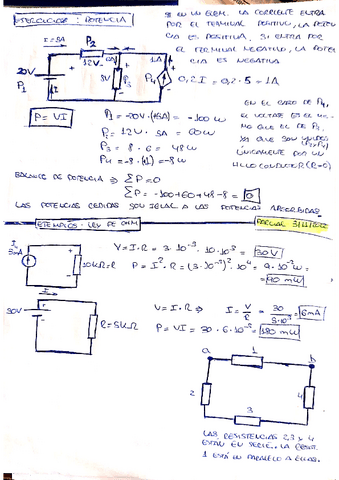 POTENCIA
SI EN UN ELEM. LA CORRIENTE ENTRA
POR EL TERMINAL POSITIVO, LA POTEN
CIA ES POSITIVA, SI ENTRA POR
EL TERMINAL NEGATIVO, LA POTEN
CIA ES NEGATIVA
I = 5A
P2
12V
20V
P1
I
8V
P3
P4
0,2I = 0,2 · 5 = 1A
P = VI
P1 = -20V · (5A) = -100W
P2 = 12V · 5A = 60W
P3 = 8 · 6 = 48W
P4 = -8 · (1) = -8W
EN EL CASO DE P4,
EL VOLTAJE ES EL MIS-
MO QUE EL DE P3
YA QUE SON UNIDOS
(P3 y P4)
ÚNICAMENTE POR UN
HILO CONDUCTOR (R=0)
BALANCE DE POTENCIA ⇒ ΣP = 0
ΣP = -100+60+48-8 = 0
LAS POTENCIAS CEDIDAS SON IGUAL A LAS POTENCIAS ABSORBIDAS
EJEMPLOS: LEY DE OHM
3mA
10kΩ = R
V = I · R = 3 · 10⁻³ · 10 · 10³ = 30V
P = I² · R = (3 · 10⁻³)² · 10⁴ = 9 · 10⁻² W =
= 90 mW
I
30V
R = 5kΩ
V = I · R ⇒ I = V/R = 30/5·10³ = 6mA
P = VI = 30 · 6 · 10⁻³ = 180 mW
a
1
b
2
4
3
LAS RESISTENCIAS 2, 3 y 4
ESTÁN EN SERIE. LA RESIST.
1 ESTÁ EN PARALELO A ELLAS.